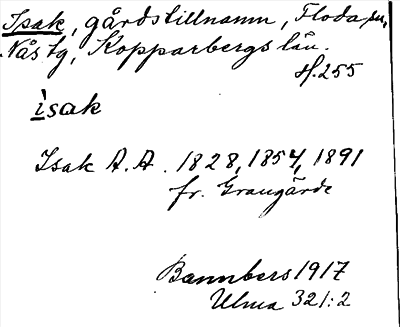 Isak, gårdstillnamn, Floda sn,
Nås tg, Kopparbergs län.
H.255
isak
Isak A. A. 1828, 1854, 1891
fr. Grangärde
Bannbers 1917
Ulma 321:2